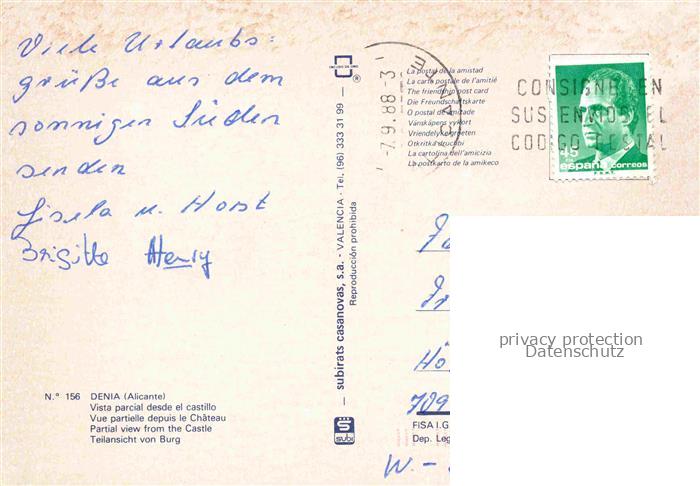 Viele Urlaubs=
grüße aus dem
sonnigen Süden
senden
Gisela u. Horst
Brigitte Henry
N.° 156 DENIA (Alicante)
Vista parcial desde el castillo
Vue partielle depuis le Château
Partial view from the Castle
Teilansicht von Burg
subirats casanovas, s.a. - VALENCIA - Tel. (96) 333 31 99
Reproducción prohibida
®
SUBI
La postal de la amistad
La carta postale de l'amitié
The friendship post card
Die Freundschaftskarte
O postal da amizade
Vänskapens vykort
Vriendelyke groeten
Otkritka druczbi
La cartolina dell'amicizia
La postkarto de la amikeco
-7.9.88-3
CONSIGNE EN
SUS ENVIOS EL
CODIGO POSTAL
45
españa correos
709
W. -
FISA I.G
Dep. Leg
privacy protection
Datenschutz